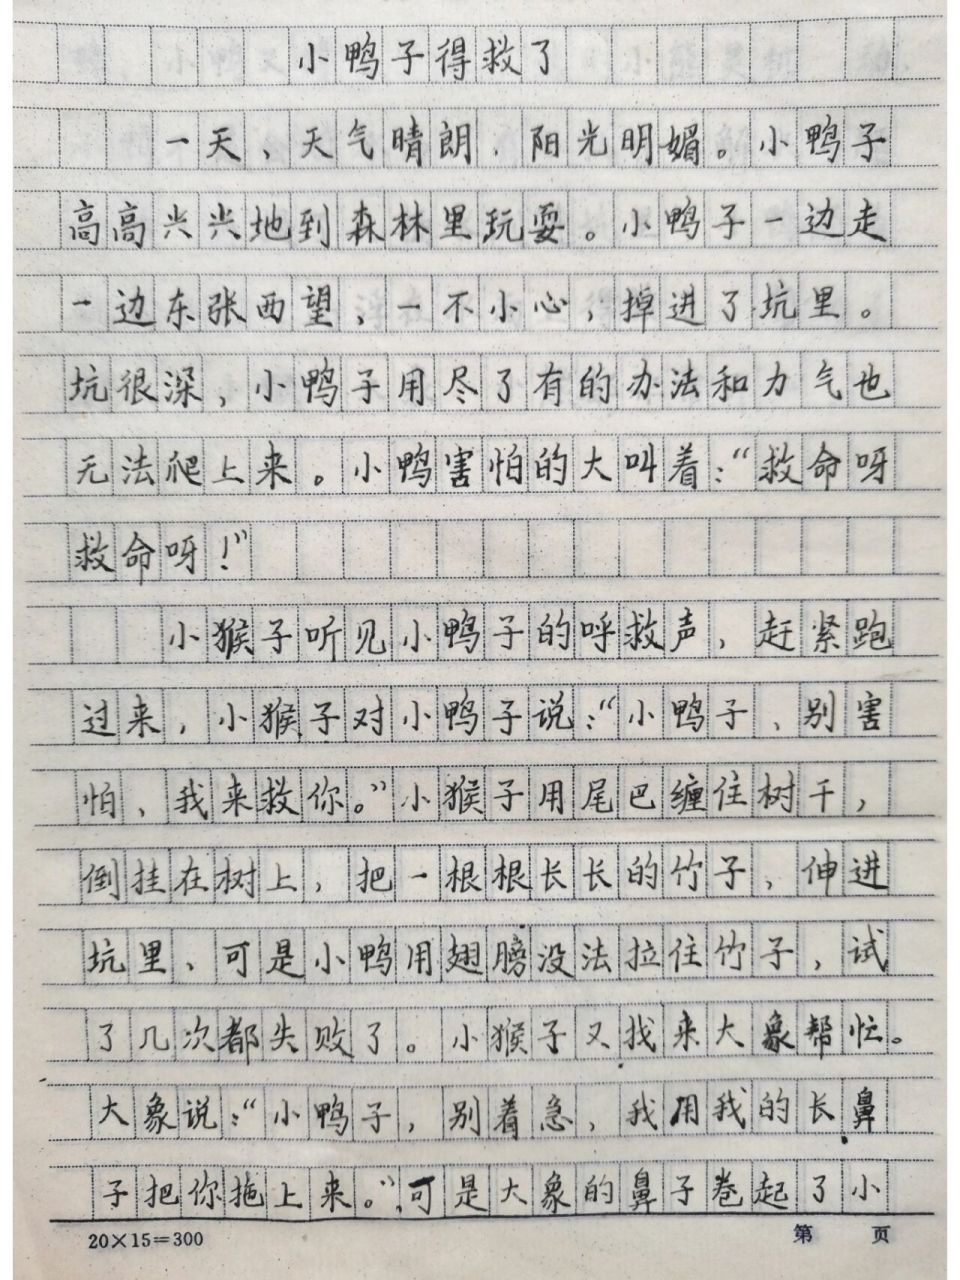 小鸭子得救了
一天、天气晴朗，阳光明媚。小鸭子
高高兴兴地到森林里玩耍。小鸭子一边走
一边东张西望，一不小心，掉进了坑里。
坑很深，小鸭子用尽了有的办法和力气也
无法爬上来。小鸭害怕的大叫着：“救命呀
救命呀！”
小猴子听见小鸭子的呼救声，赶紧跑
过来，小猴子对小鸭子说：“小鸭子、别害
怕、我来救你。”小猴子用尾巴缠住树干，
倒挂在树上，把一根根长长的竹子、伸进
坑里、可是小鸭用翅膀没法拉住竹子，试
了几次都失败了。小猴子又找来大象帮忙。
大象说：“小鸭子，别着急，我用我的长鼻
子把你拖上来。”可是大象的鼻子卷起了小
20×15=300
第 页